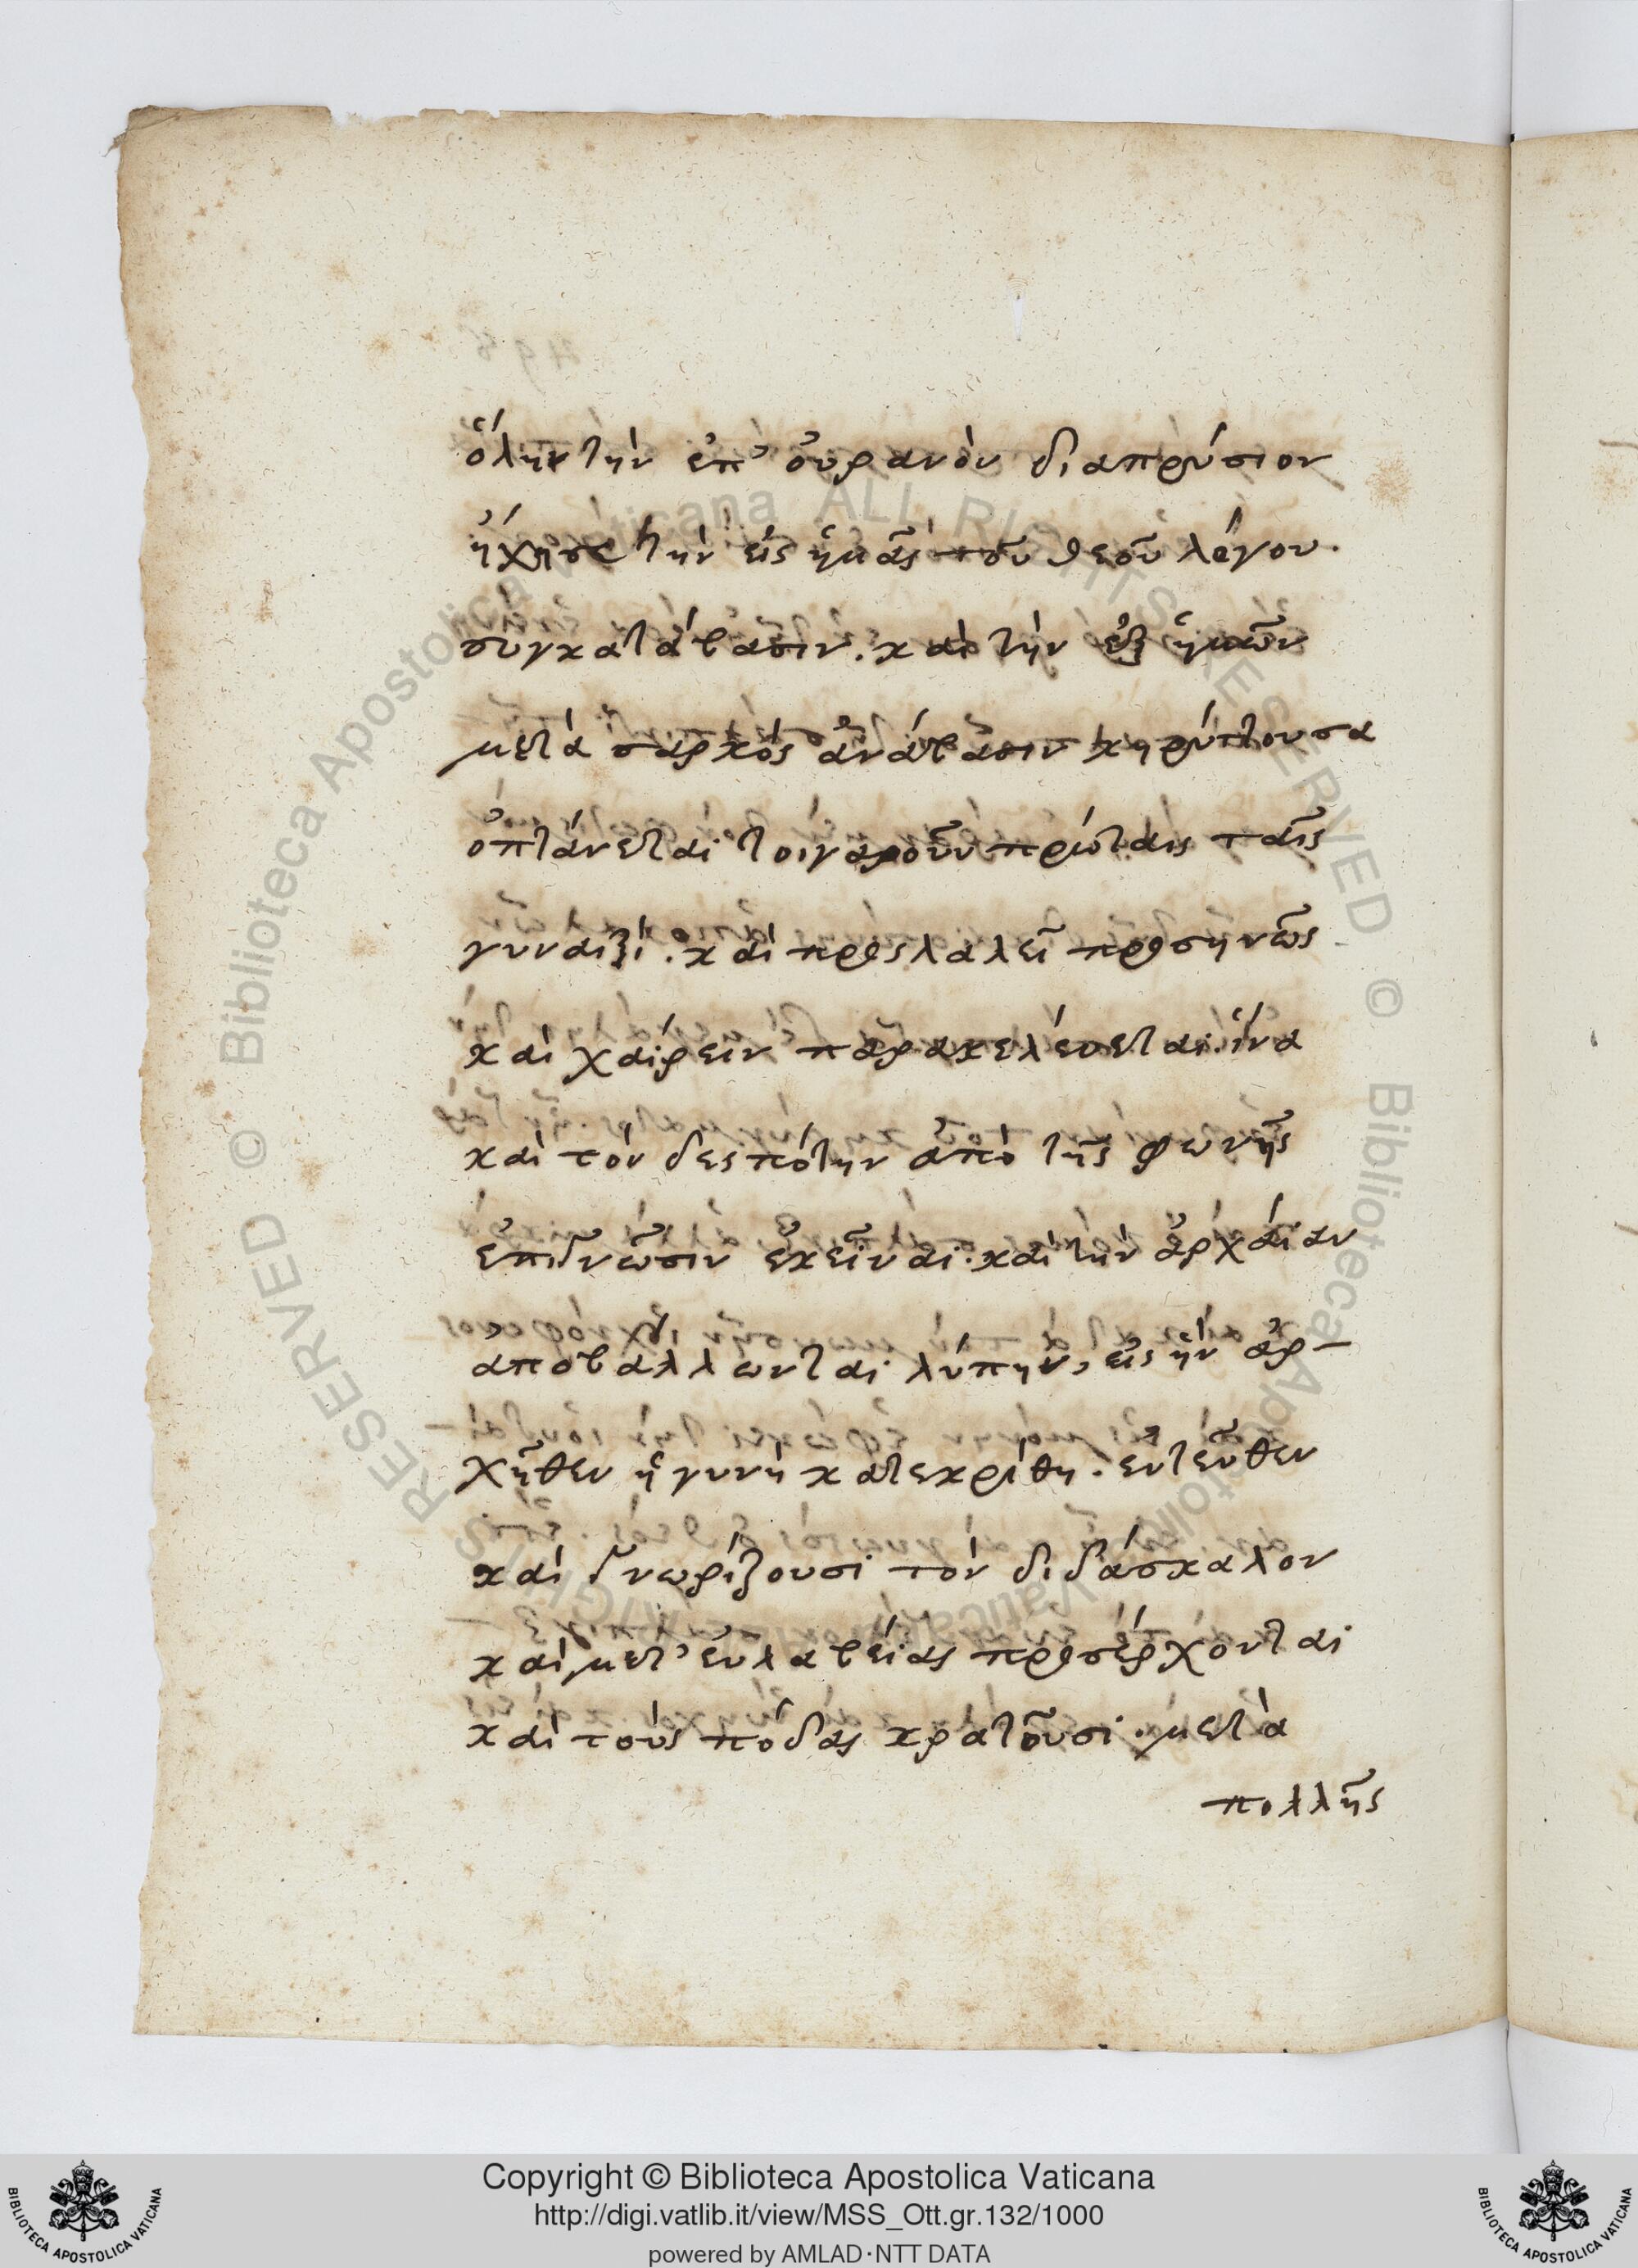 ὅλην τὴν ἐπ' οὐρανὸν διαπρύσιον
ἤχησε τὴν εἰς ἡμᾶς τοῦ θεοῦ λόγου.
συγκατάβασιν. καὶ τὴν ἐξ ἡμῶν
μετὰ σαρκὸς ἀνάβασιν κηρύττουσα
ὀπτάνεται τοιγαροῦν πρώταις ταῖς
γυναιξί. καὶ προςλαλεῖ προσηνῶς
καὶ χαίρειν παρακελέυεται. ἵνα
καὶ τὸν δεςπότην ἀπὸ τῆς φωνῆς
ἐπιγνῶσιν ἐκεῖναι. καὶ τὴν ἀρχαίαν
ἀποβάλλωνται λύπην, εἰς ἣν ἀρ-
χῆθεν ἡ γυνὴ κατεκρίθη. ἐντεῦθεν
καὶ γνωρίζουσι τὸν διδάσκαλον
καὶ μετ' εὐλαβείας προσέρχονται
καὶ τοὺς πόδας κρατοῦσι. μετὰ
πολλῆς
Copyright © Biblioteca Apostolica Vaticana
http://digi.vatlib.it/view/MSS_Ott.gr.132/1000
powered by AMLAD·NTT DATA
BIBLIOTECA APOSTOLICA VATICANA
BIBLIOTECA APOSTOLICA VATICANA